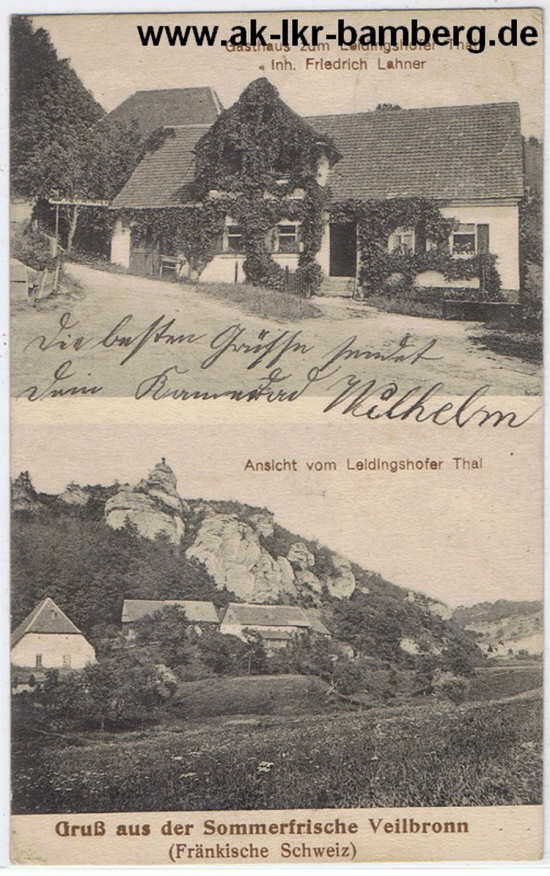 www.ak-lkr-bamberg.de
Gasthaus zum Leidingshofer Thal
Inh. Friedrich Lahner
Die besten Grüsse sendet
Dein Kamerad Wilhelm
Ansicht vom Leidingshofer Thal
Gruß aus der Sommerfrische Veilbronn
(Fränkische Schweiz)